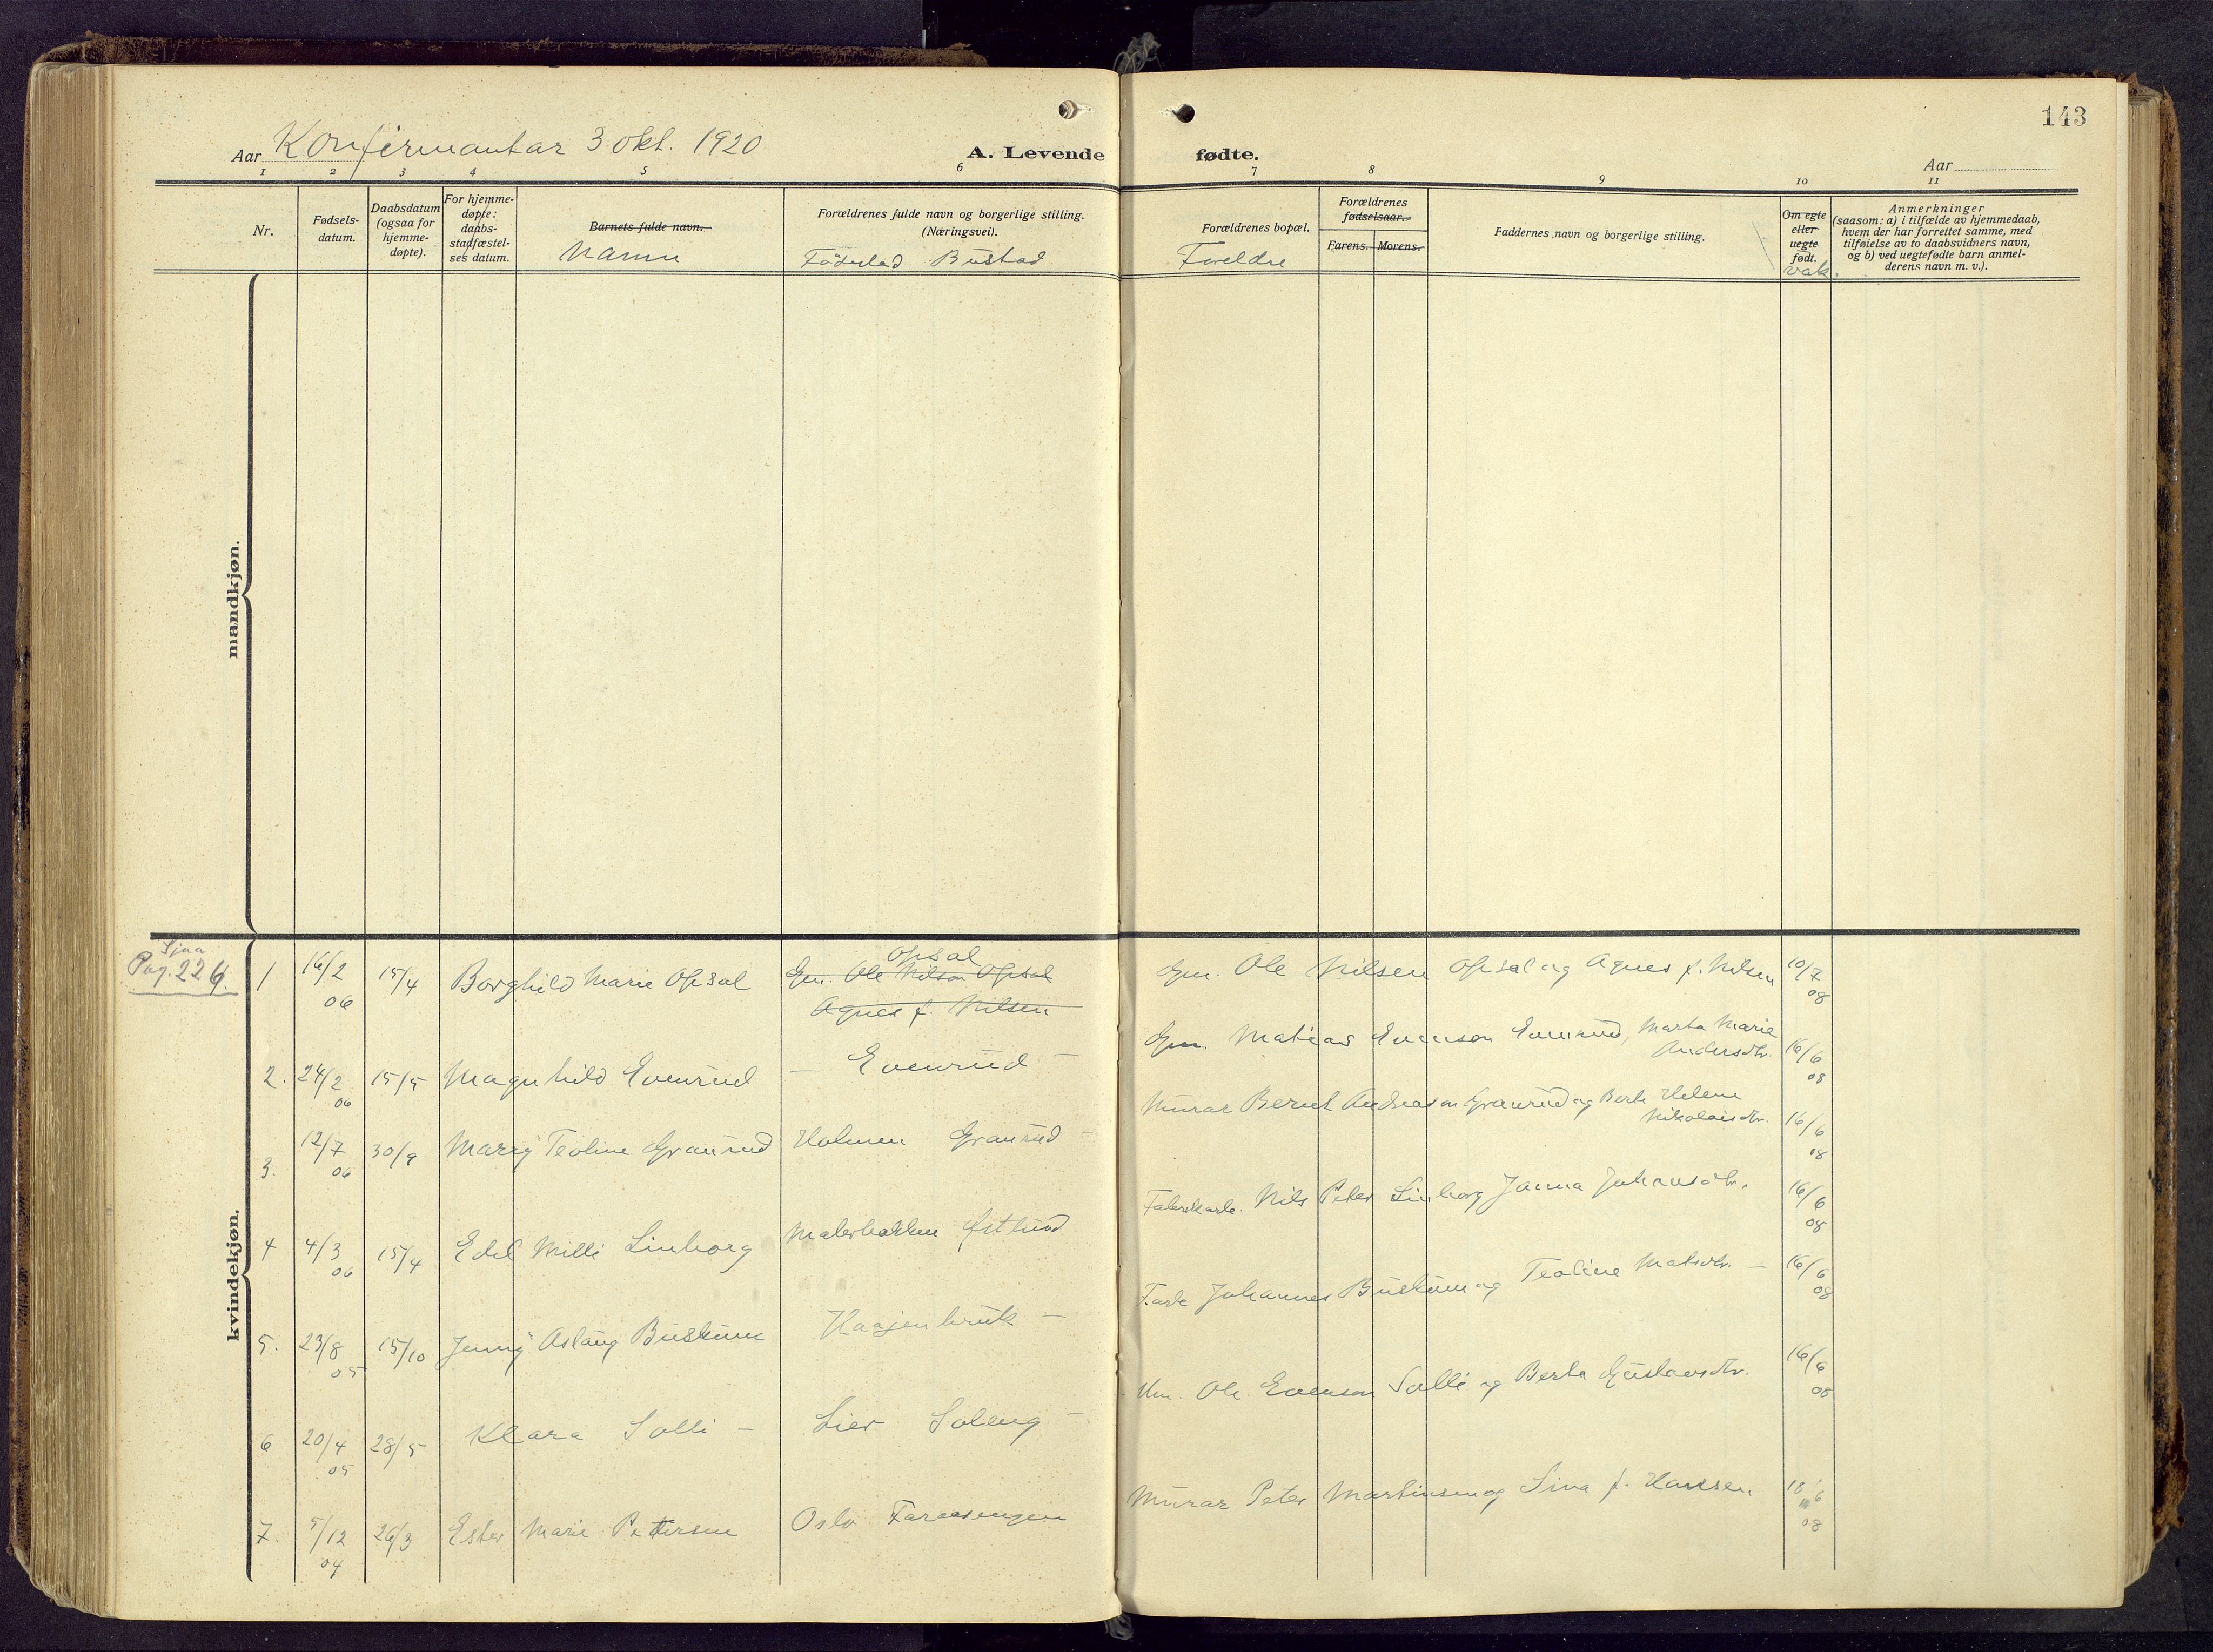 143
Aar Konfirmantar 3 okt. 1920
A. Levende fødte.
Aar
1 2 3 4 5 6 7 8 9 10 11
Nr.
Fødsels-
datum.
Daabsdatum
(ogsaa for
hjemme-
døpte).
For hjemme-
døpte:
daabs-
stadfæstel-
ses datum.
Barnets fulde navn.
Namn
Forældrenes fulde navn og borgerlige stilling.
(Næringsvei).
Fødestad Bustad
Forældrenes bopæl.
Foreldre
Forældrenes
fødselsaar.
Farens. Morens.
Faddernes navn og borgerlige stilling.
Om egte
eller
uegte
født.
vak.
Anmerkninger
(saasom: a) i tilfælde av hjemmedaab,
hvem der har forrettet samme, med
tilføielse av to daabsvidners navn,
og b) ved uegtefødte barn anmel-
derens navn m. v.).
mandkjøn.
kvindekjøn.
Sjaa
Pag. 226.
1 16/2 06 15/4 Borghild Marie Opsal Opsal
Gm. Ole Nilsen Opsal
Agnes f. Nilsen
Gm. Ole Nilsen Opsal og Agnes f. Nilsen 10/7 08
2. 24/2 06 15/5 Magnhild Evenrud — Evenrud —
Gm. Matias Evensen Evenrud, Marta Marie
Andersdtr. 16/6 08
3. 12/7 06 30/9 Marry Teoline Granrud Holmen Granrud —
Murar Bernt Andreason Granrud og Berte Helene
Nikolaisdtr. 16/6 08
4 4/3 06 15/4 Edel Milli Linborg Malerbakken Østlund
Nils Peter Linborg Janna Johansdtr. 16/6 08
5. 23/8 05 15/10 Jenny Aslaug Buskum Haagenbruk —
Johannes Buskum og Teoline Matsdtr. — 16/6 08
6 20/4 05 28/5 Klara Solli — Lier Soleng —
Ole Evenson Solli og Berte Gustavsdtr. 16/6 08
7. 5/12 04 26/3 Ester Marie Petersen Oslo
Murar Peter Martinsen og Sina f. Hansen. 18/6 08